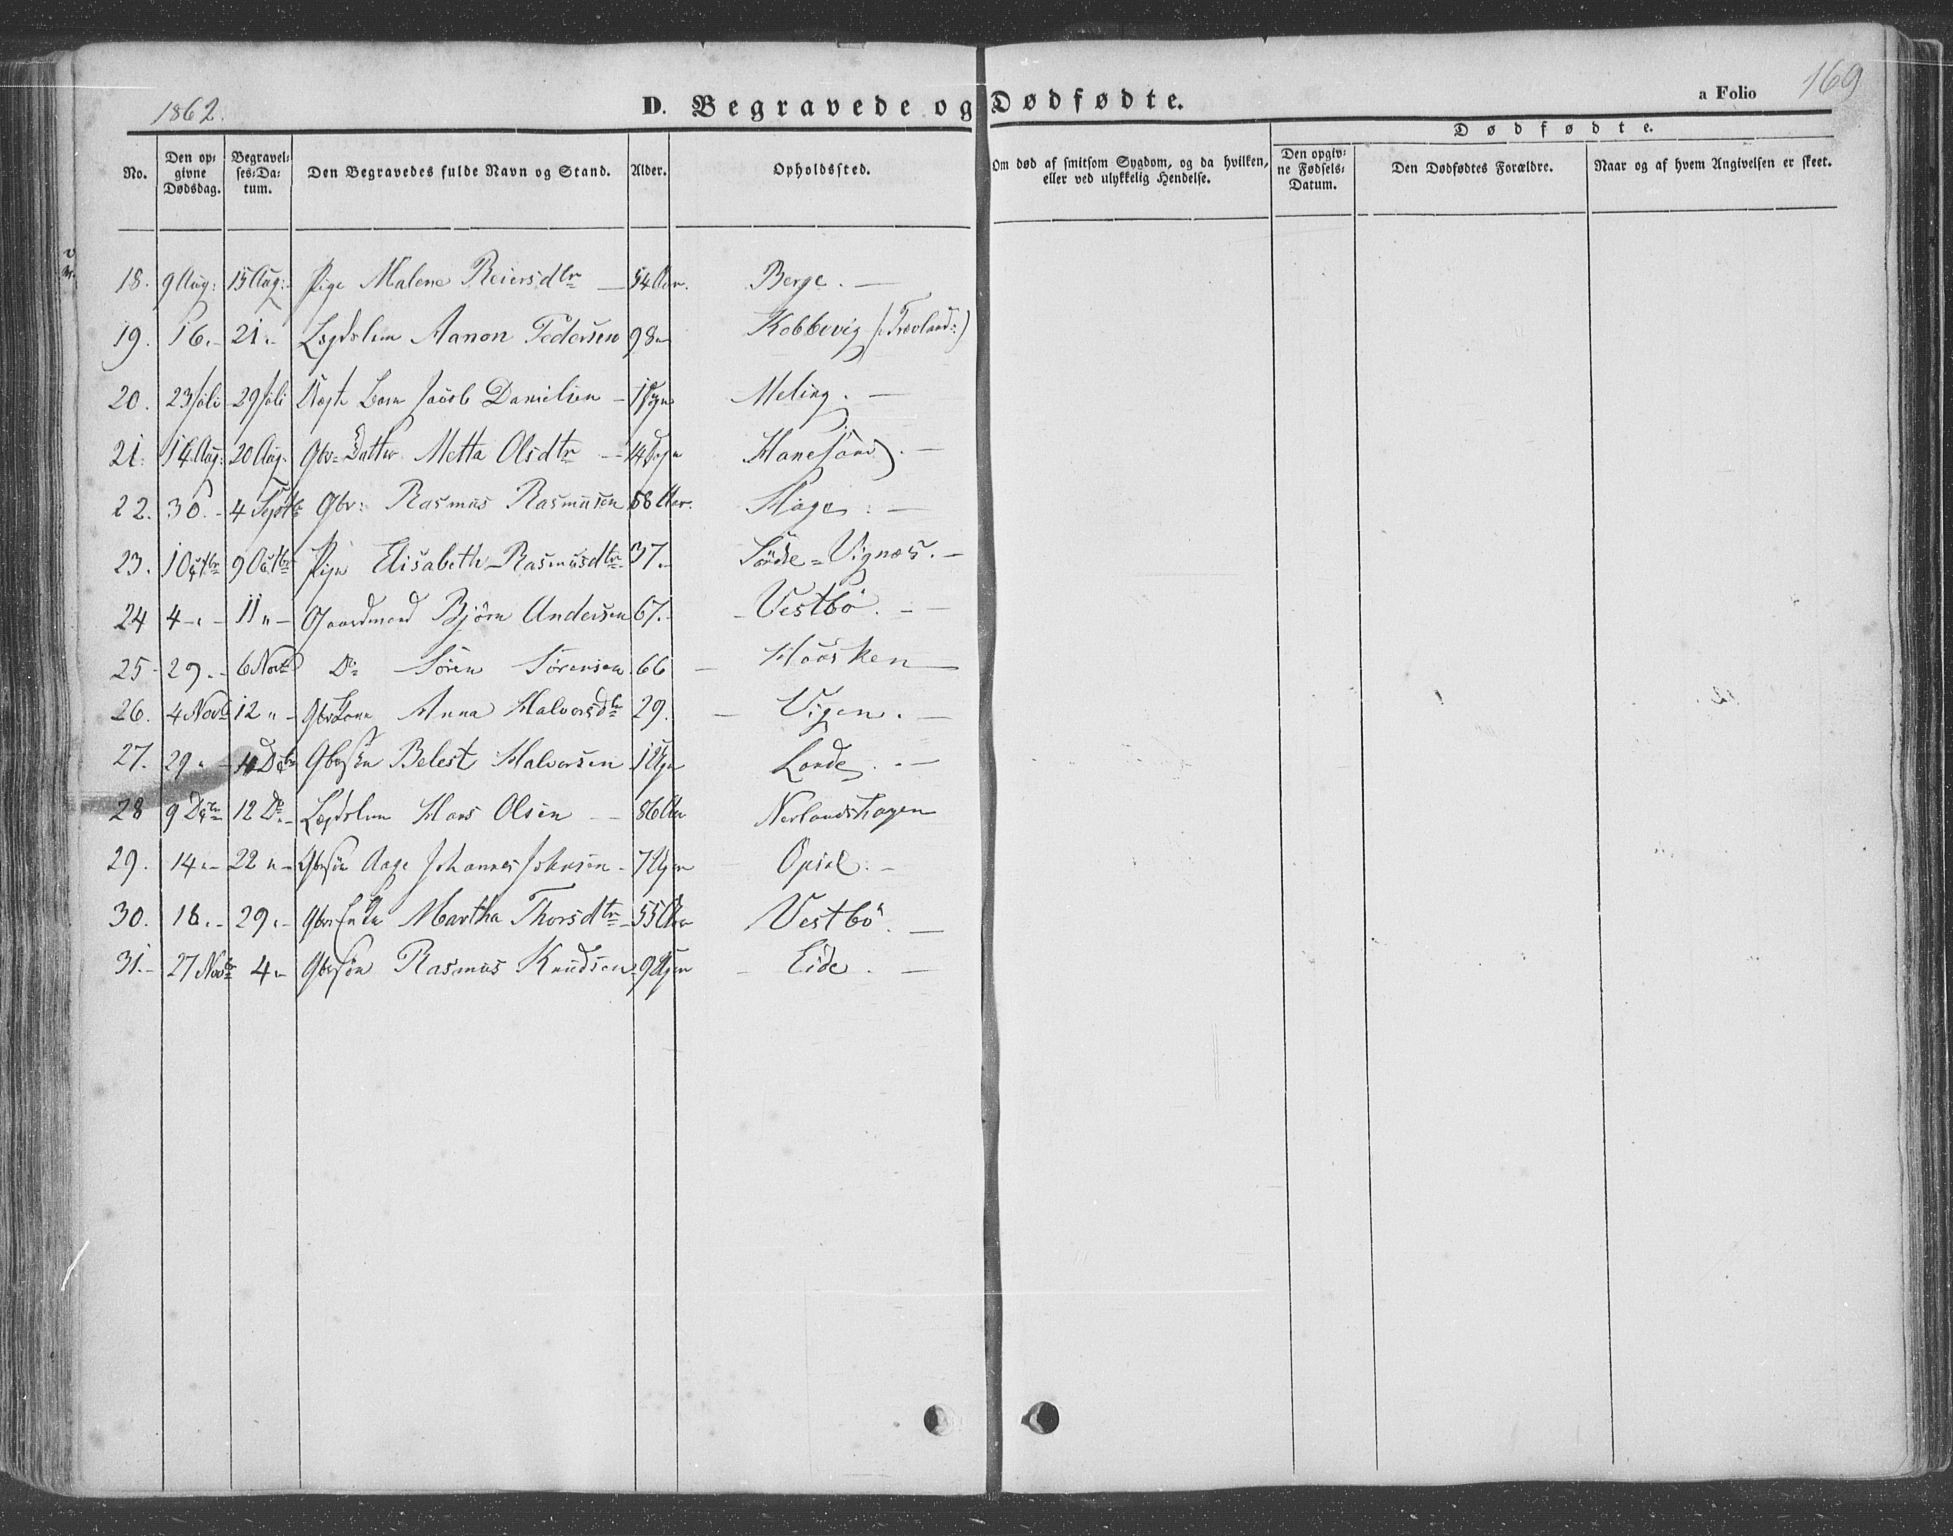 1862.
D. Begravede og Dødfødte.
a Folio 169
Dødfødte.
No. | Den opgivne Dødsdag. | Begravelses-Datum. | Den Begravedes fulde Navn og Stand. | Alder. | Opholdssted. | Om død af smitsom Sygdom, og da hvilken, eller ved ulykkelig Hendelse. | Den opgivne Fødsels-Datum. | Den Dødfødtes Forældre. | Naar og af hvem Angivelsen er skeet.
18. 9 Aug: 15 Aug: Pige Malene Reiersdtr 54 Aar. Berge.
19. 16. 21. Lægdslem Aanon Pedersen 98 Kobbevig (Trovland)
20. 23 Juli 29 Juli Barn Jacob Danielsen Meling.
21. 14 Aug: 20 Aug. Gbr. Datter Metta Olsdtr 14 Hanesand.
22. 30. 4 Septb Gbr: Rasmus Rasmusen 58 Aar. Hage.
23. 1 Octbr 9 Octbr Pige Elisabeth Rasmusdtr 37. Søndre Vignes.
24 4 11 Gaardmand Bjørn Andersen 67. Vestbö.
25 29. 6 Novb Do Sören Sörensen 66 Haasken
26. 4 Novb 12 Gbr Kone Anna Halvorsdtr 29. Vigen.
27. 29 Gbrsön Belest Halvorsen 1 Uge Lande.
28 9 Decbr 12 Do Lægdslem Hans Olsen 86 Aar Nerlandshagen
29. 14 22 Gbrsön Aage Johannes Johnsen 7 Uger Opsal.
30. 16. 29. Gbr Enke Martha Thorsdtr 55 Aar Vestbö.
31. 27 Novb 4 Gbrsön Rasmus Knudsen 9 Uger Eide.